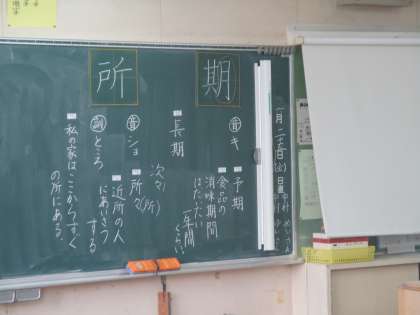 一月二十五日(金)日直
期
音キ
予期
食品の
消味期間
はだいたい
一年間
くらい
長期
所
音ショ
次々(所)
所々
近所の人
にあいさつ
する
訓ところ
私の家はここからすぐ
の所にある。